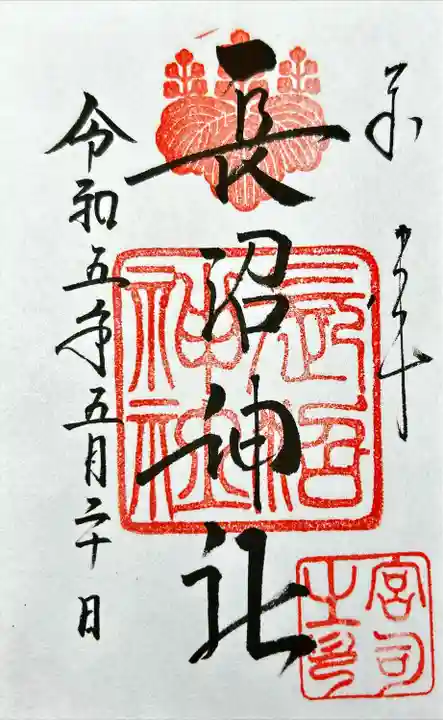 奉拝
長沼神社
令和五年五月二十日
長沼神社
宮司之印